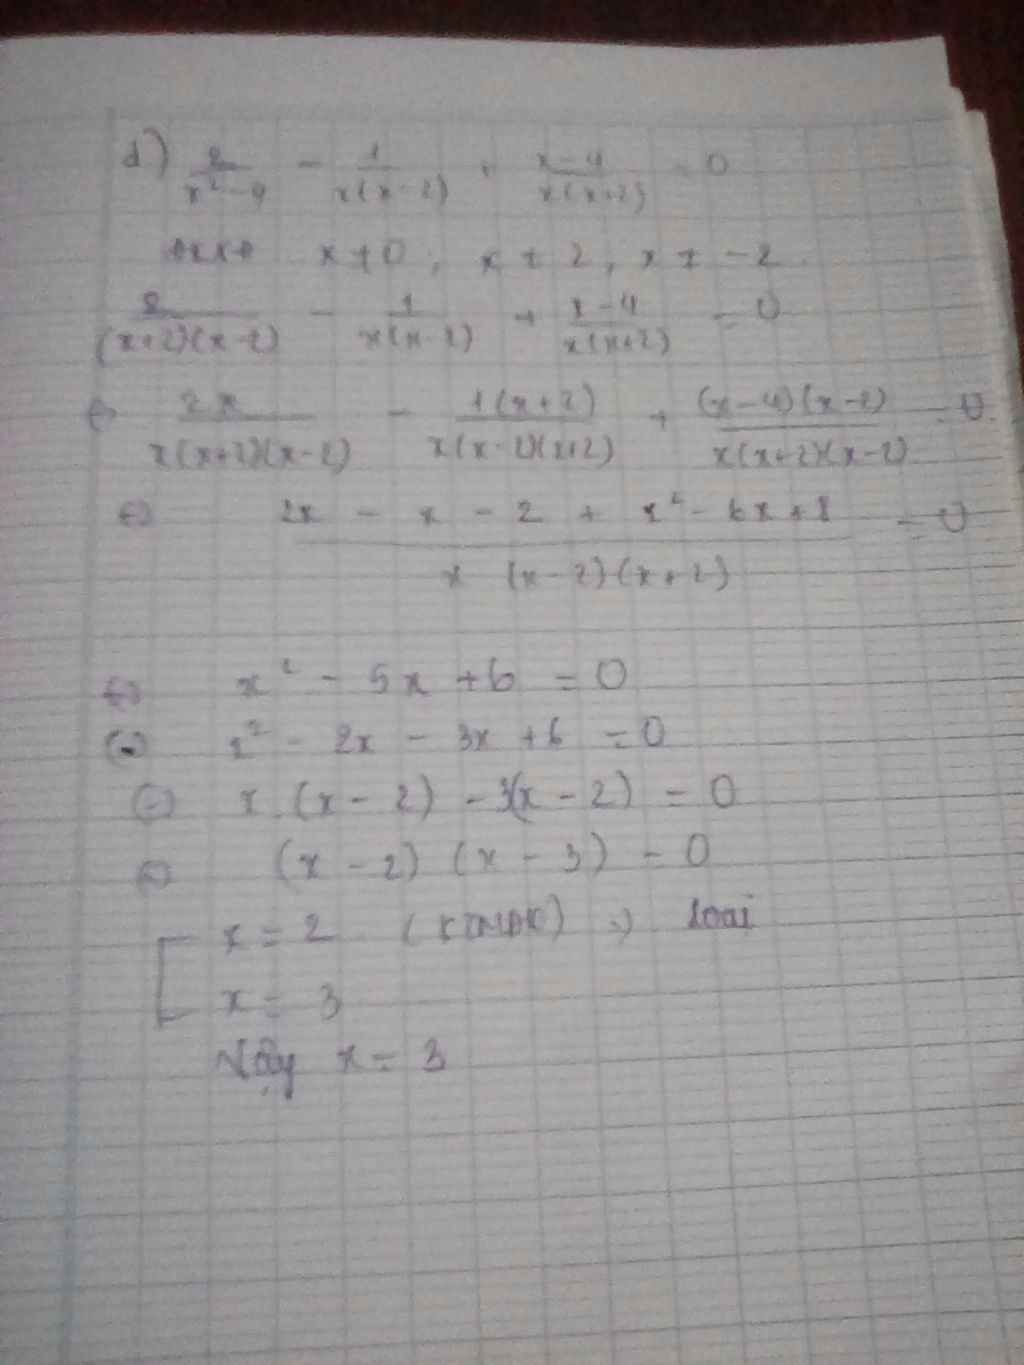 d) 2/(x² - 4) - 1/(x(x - 2)) + (x - 4)/(x(x + 2)) = 0
x ≠ 0, x ≠ 2, x ≠ -2
2/((x+2)(x-2)) - 1/(x(x-2)) + (x-4)/(x(x+2)) = 0
⇔ 2x/(x(x+2)(x-2)) - 1(x+2)/(x(x-2)(x+2)) + (x-4)(x-2)/(x(x+2)(x-2)) = 0
⇔ (2x - x - 2 + x² - 6x + 8)/(x (x-2)(x+2)) = 0
⇔ x² - 5x + 6 = 0
⇔ x² - 2x - 3x + 6 = 0
⇔ x (x - 2) - 3(x - 2) = 0
⇔ (x - 2) (x - 3) = 0
[ x = 2 (KTMĐK) → loại
x = 3
Vậy x = 3